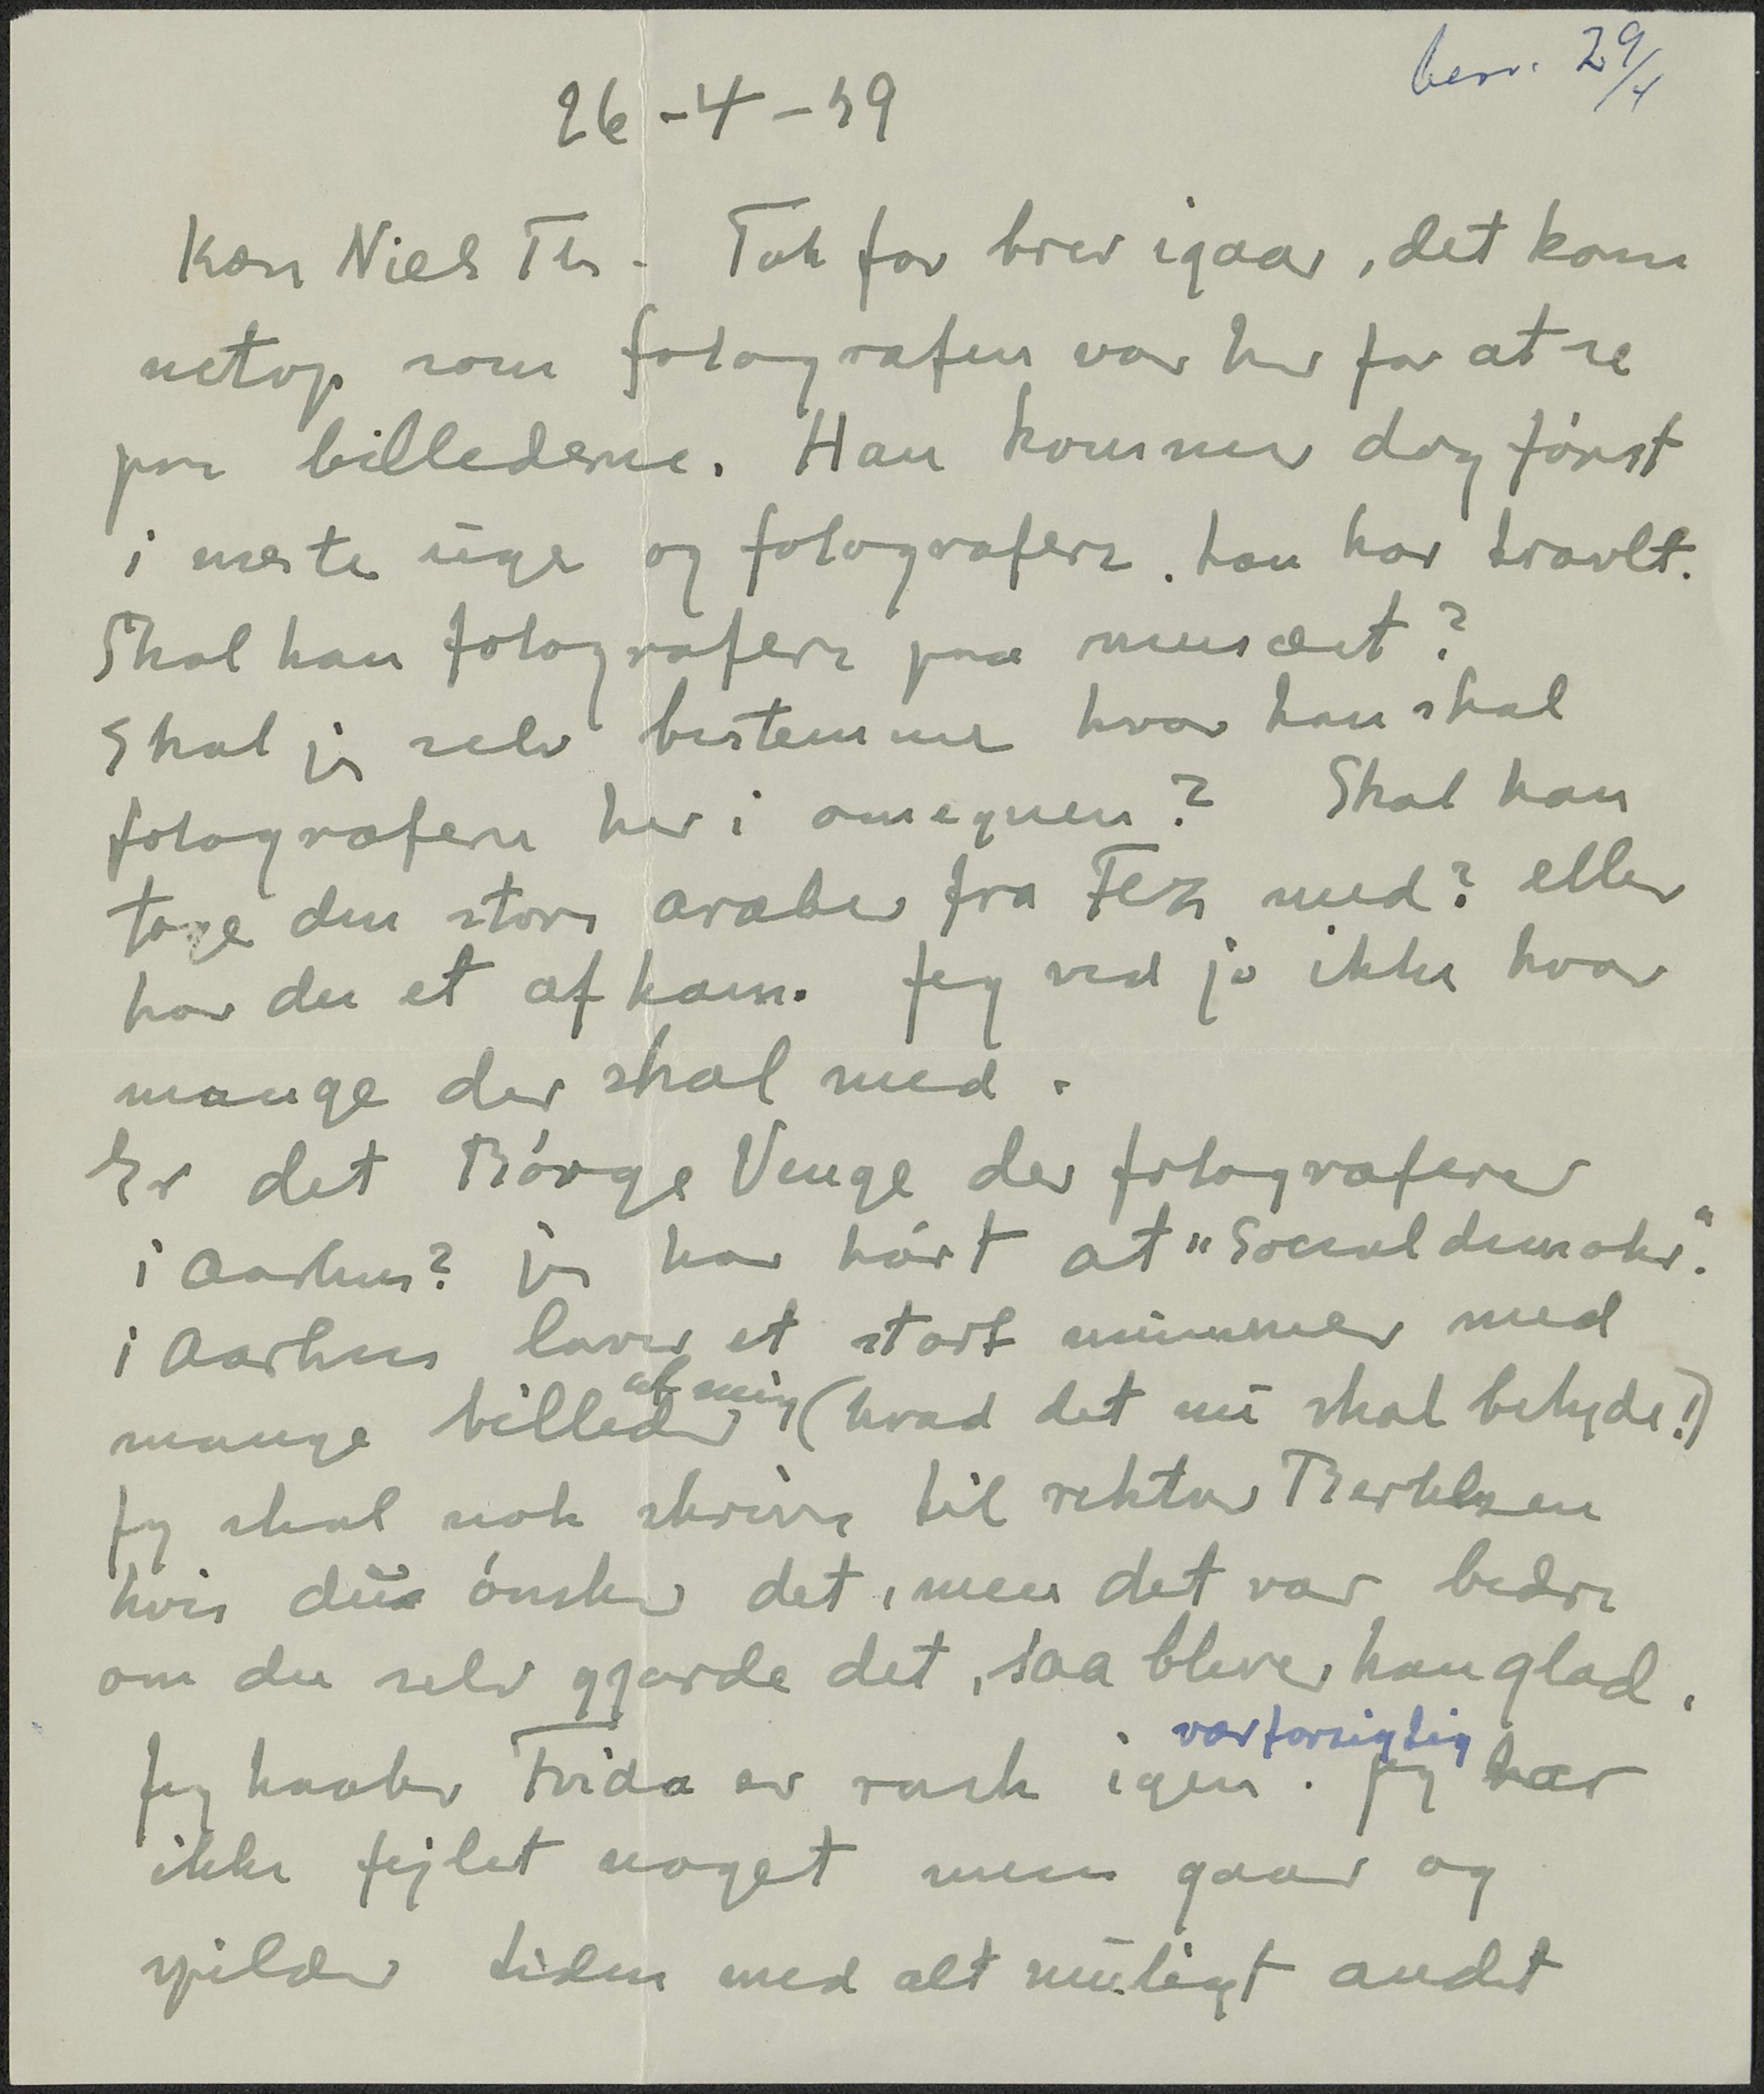 besv. 29/4
26-4-59
Kær Niels Th. Tak for brev igaar, det kom
netop som fotografen var her for at se
paa billederne. Han kommer dog først
i næste uge og fotografere. han har travlt.
Skal han fotografere paa musæet?
Skal jeg selv bestemme hvor han skal
fotografere her i omegnen? Skal han
tage den store araber fra Fez med? eller
har du et af ham. Jeg ved jo ikke hvor
mange der skal med.
Er det Børge Venge der fotograferer
i Aarhus? jeg har hørt at "Socialdemokr."
i Aarhus laver et stort nummer med
mange billeder af mig (hvad det nu skal betyde!)
Jeg skal nok skrive til rektor Berthelsen
hvis du ønsker det, men det var bedre
om du selv gjorde det, saa bliver han glad.
Jeg haaber Frida er rask igen. vær forsigtig Jeg har
ikke fejlet noget men gaar og
spilder tiden med alt muligt andet